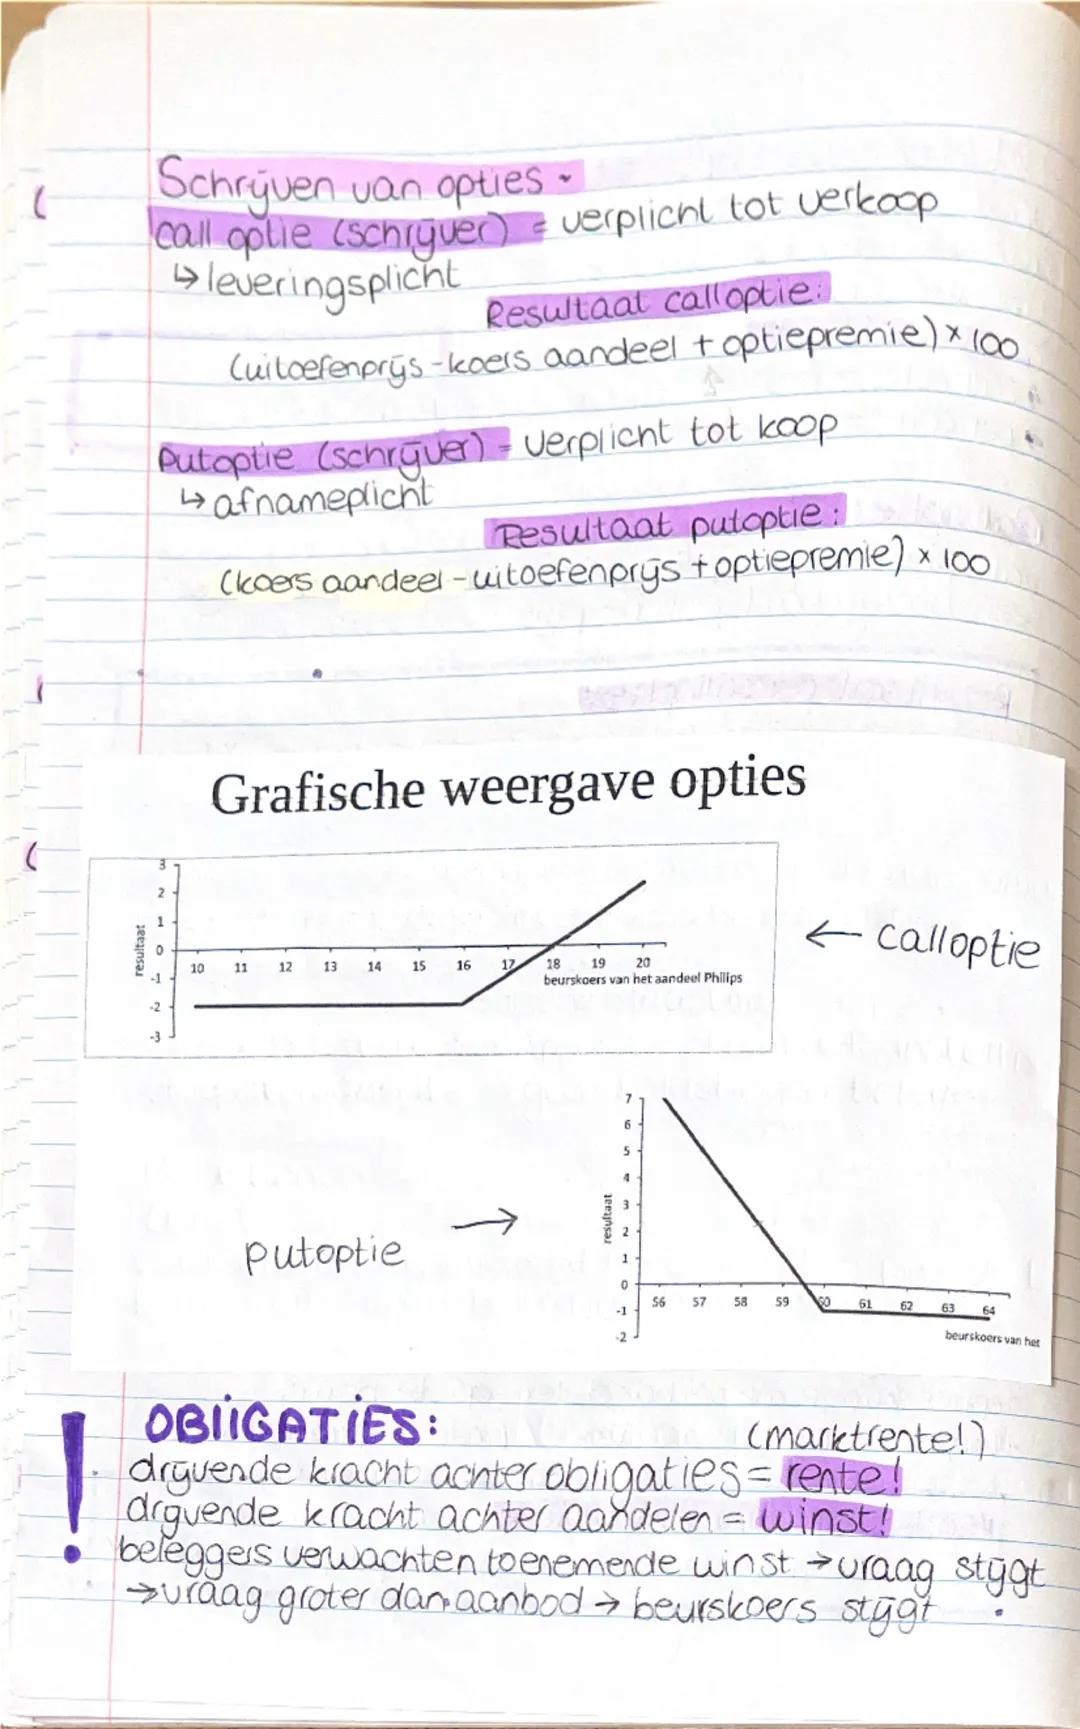 Schrijven van opties
call optie (schrijver) = verplicht tot verkoop
↳ leveringsplicht
Resultaat calloptie:
(uitoefenprijs - koers aandeel + optiepremie) × 100
Putoptie (schrijver) = verplicht tot koop
↳ afnameplicht
Resultaat putoptie:
(koers aandeel - uitoefenprijs + optiepremie) × 100
Grafische weergave opties
3
2
1
0
-1
-2
-3
resultaat
10 11 12 13 14 15 16 17 18 19 20
beurskoers van het aandeel Philips
← calloptie
putoptie →
7
6
5
4
3
2
1
0
-1
-2
resultaat
56 57 58 59 60 61 62 63 64
beurskoers van het
! OBLIGATIES: (marktrente!)
drijvende kracht achter obligaties = rente!
drijvende kracht achter aandelen = winst!
beleggers verwachten toenemende winst → vraag stijgt
→ vraag groter dan aanbod → beurskoers stijgt